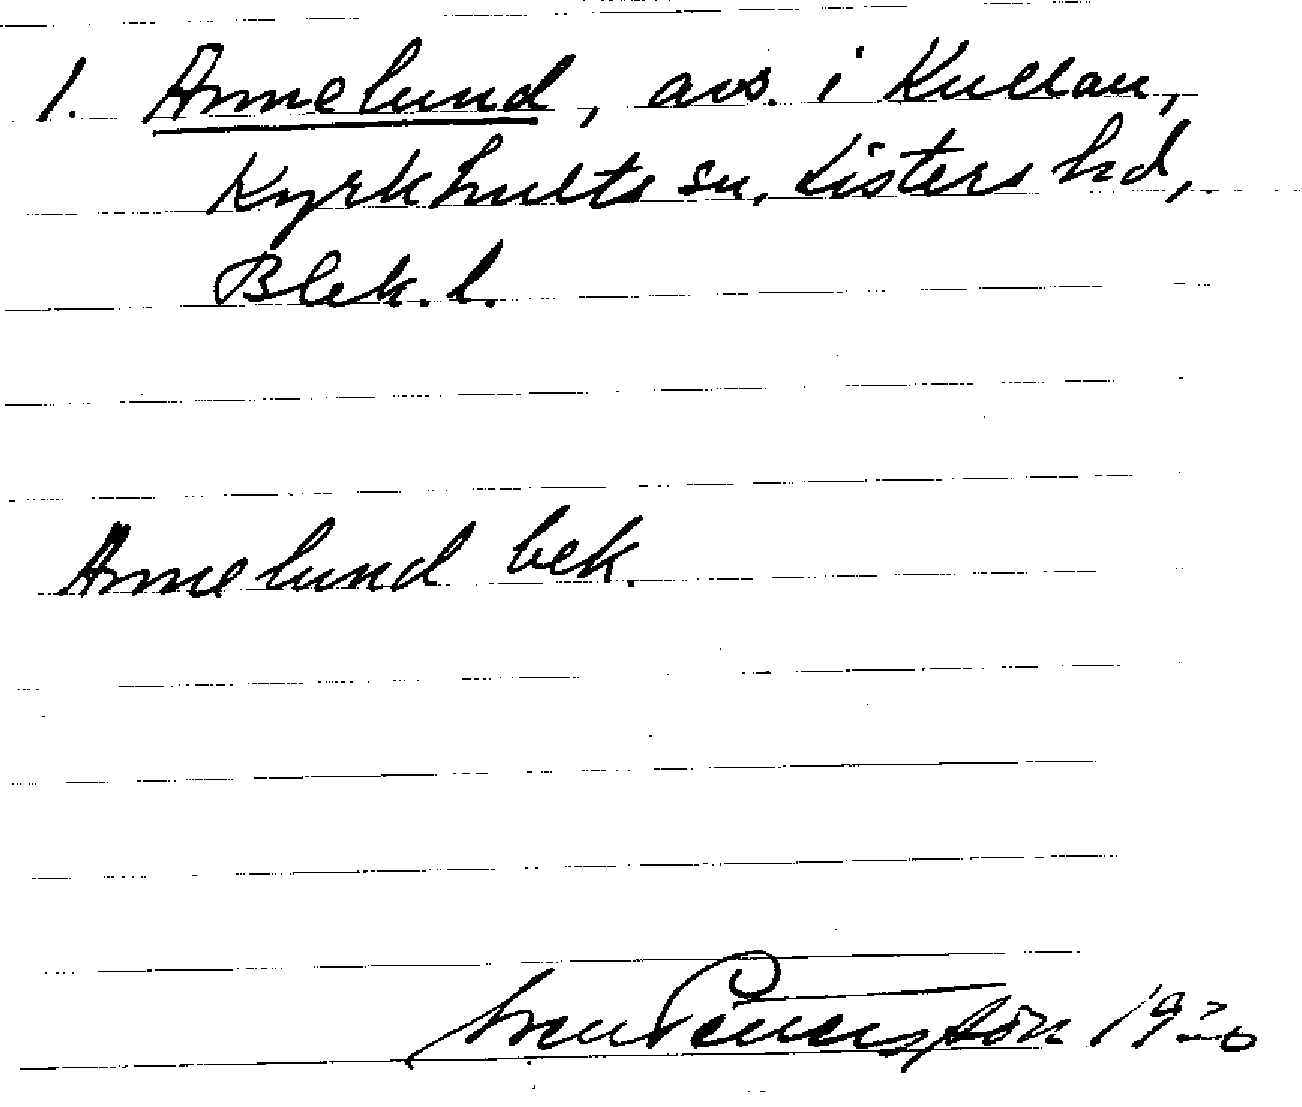 1. Annelund, avs. i Kullan,
Kyrkhults sn, Listers hd,
Blek. l.
Annelund bek.
Sven